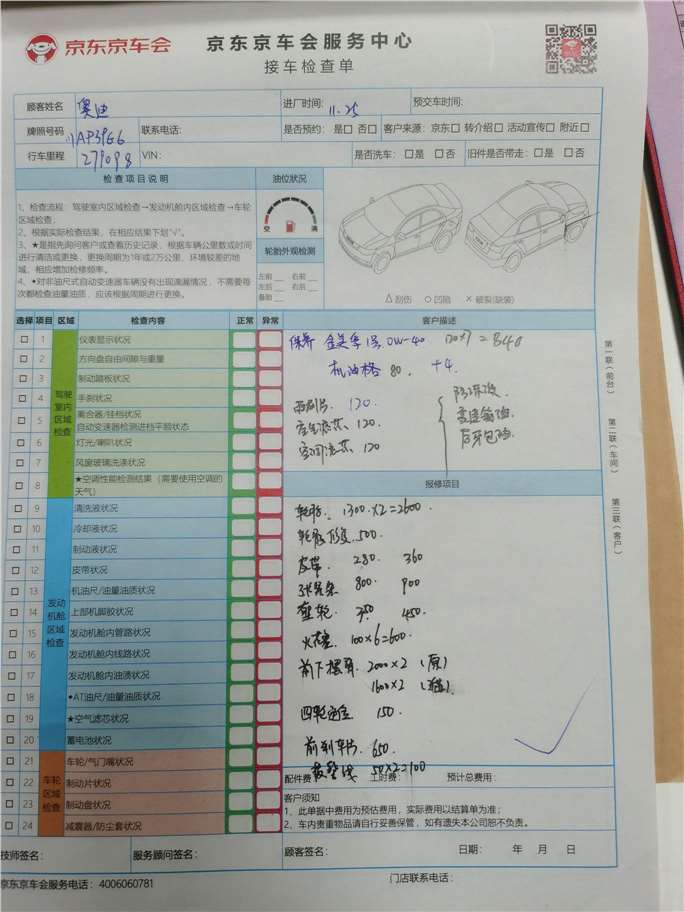 京东京车会 京东京车会服务中心
接车检查单
顾客姓名 奥迪 进厂时间: 11.25 预交车时间:
牌照号码 川AP39G6 联系电话: 是否预约: 是□ 否□ 客户来源: 京东□ 转介绍□ 活动宣传□ 附近□
行车里程 279098 VIN: 是否洗车: □是 □否 旧件是否带走: □是 □否
检查项目说明 油位状况
1、检查流程: 驾驶室内区域检查→发动机舱内区域检查→车轮
区域检查;
2、根据实际检查结果, 在相应结果下划"√"。
3、★是指先询问客户或查看历史记录, 根据车辆公里数或时间
进行清洁或更换, 更换周期为1年或2万公里, 环境较差的地
域, 相应增加检修频率。
4、•对非油尺式自动变速器车辆没有出现渗漏情况, 不需要每
次都检查油量油质, 应该根据周期进行更换。
空 满
轮胎外观检测
左前__ 右前__
左后__ 右后__
备胎__
△ 刮伤 ○ 凹陷 × 破裂(缺装)
选择 项目 区域 检查内容 正常 异常 客户描述
驾驶室内区域检查
□ 1 仪表显示状况
□ 2 方向盘自由间隙与重量
□ 3 制动踏板状况
□ 4 手刹状况
□ 5 离合器/挂档状况
自动变速器检测进档平顺状态
□ 6 灯光/喇叭状况
□ 7 风窗玻璃洗涤状况
□ 8 ★空调性能检测结果 (需要使用空调的
天气)
发动机舱区域检查
□ 9 清洗液状况
□ 10 冷却液状况
□ 11 制动液状况
□ 12 皮带状况
□ 13 机油尺/油量油质状况
□ 14 上部机脚胶状况
□ 15 发动机舱内管路状况
□ 16 发动机舱内线路状况
□ 17 发动机舱内油渍状况
□ 18 •AT油尺/油量油质状况
□ 19 ★空气滤芯状况
□ 20 蓄电池状况
车轮区域检查
□ 21 车轮/气门嘴状况
□ 22 制动片状况
□ 23 制动盘状况
□ 24 减震器/防尘套状况
保养 金美孚1号 0W-40 120×7=840
机油格 80. +4.
雨刮片 120.
空气滤芯 120.
空调滤芯 120
防冻液.
变速箱油.
后牙包油.
报修项目
轮胎. 1300.×2=2600.
轮胎修复 500.
皮带. 280. 360
涨紧器 800. 900
惰轮. 350 450.
火花塞. 100×6=600.
前下摆臂. 2000×2 (原)
1600×2
四轮定位 150.
前刹车片. 650.
50×2=100
配件费 工时费: 预计总费用:
客户须知
1、此单据中费用为预估费用, 实际费用以结算单为准;
2、车内贵重物品请自行妥善保管, 如有遗失本公司恕不负责。
第一联(前台)
第二联(车间)
第三联(客户)
技师签名: 服务顾问签名: 顾客签名: 日期: 年 月 日
京东京车会服务电话: 4006060781 门店联系电话: